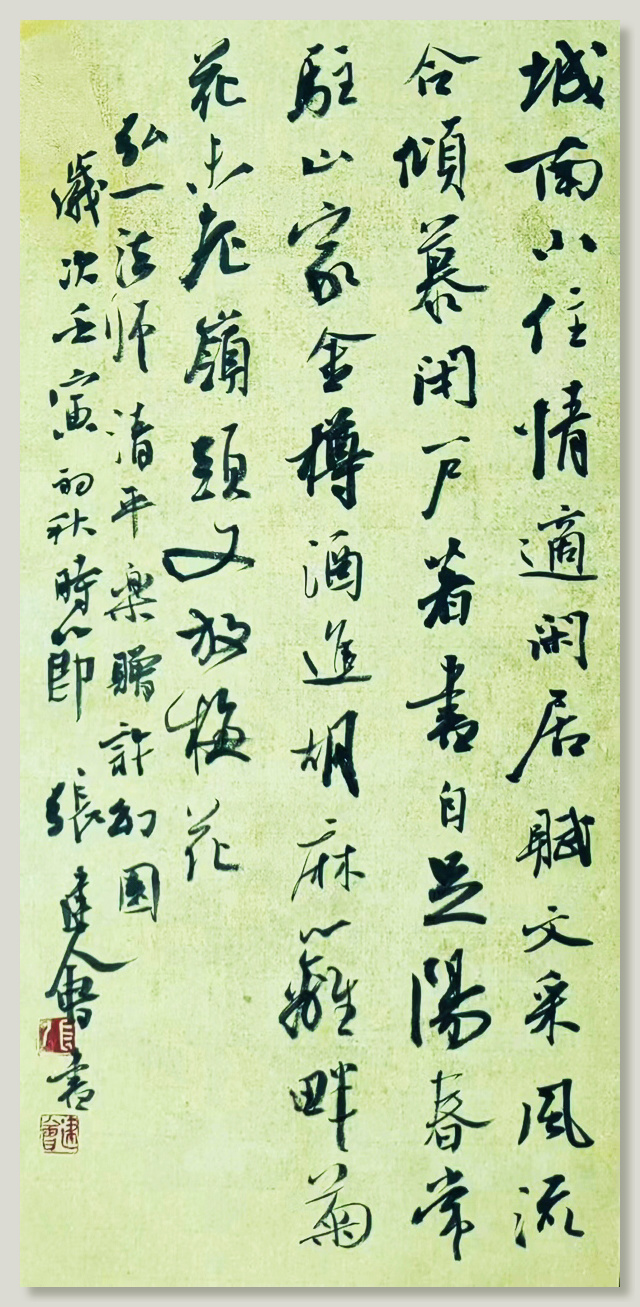 城南小住情適閑居賦文采風流
合傾慕閉户著書自足陽春常
駐山家金樽酒進胡麻籬畔菊
花未老嶺頭又放梅花
弘一法師清平樂贈許幻園
歲次壬寅初秋時節張建會書
張
建會